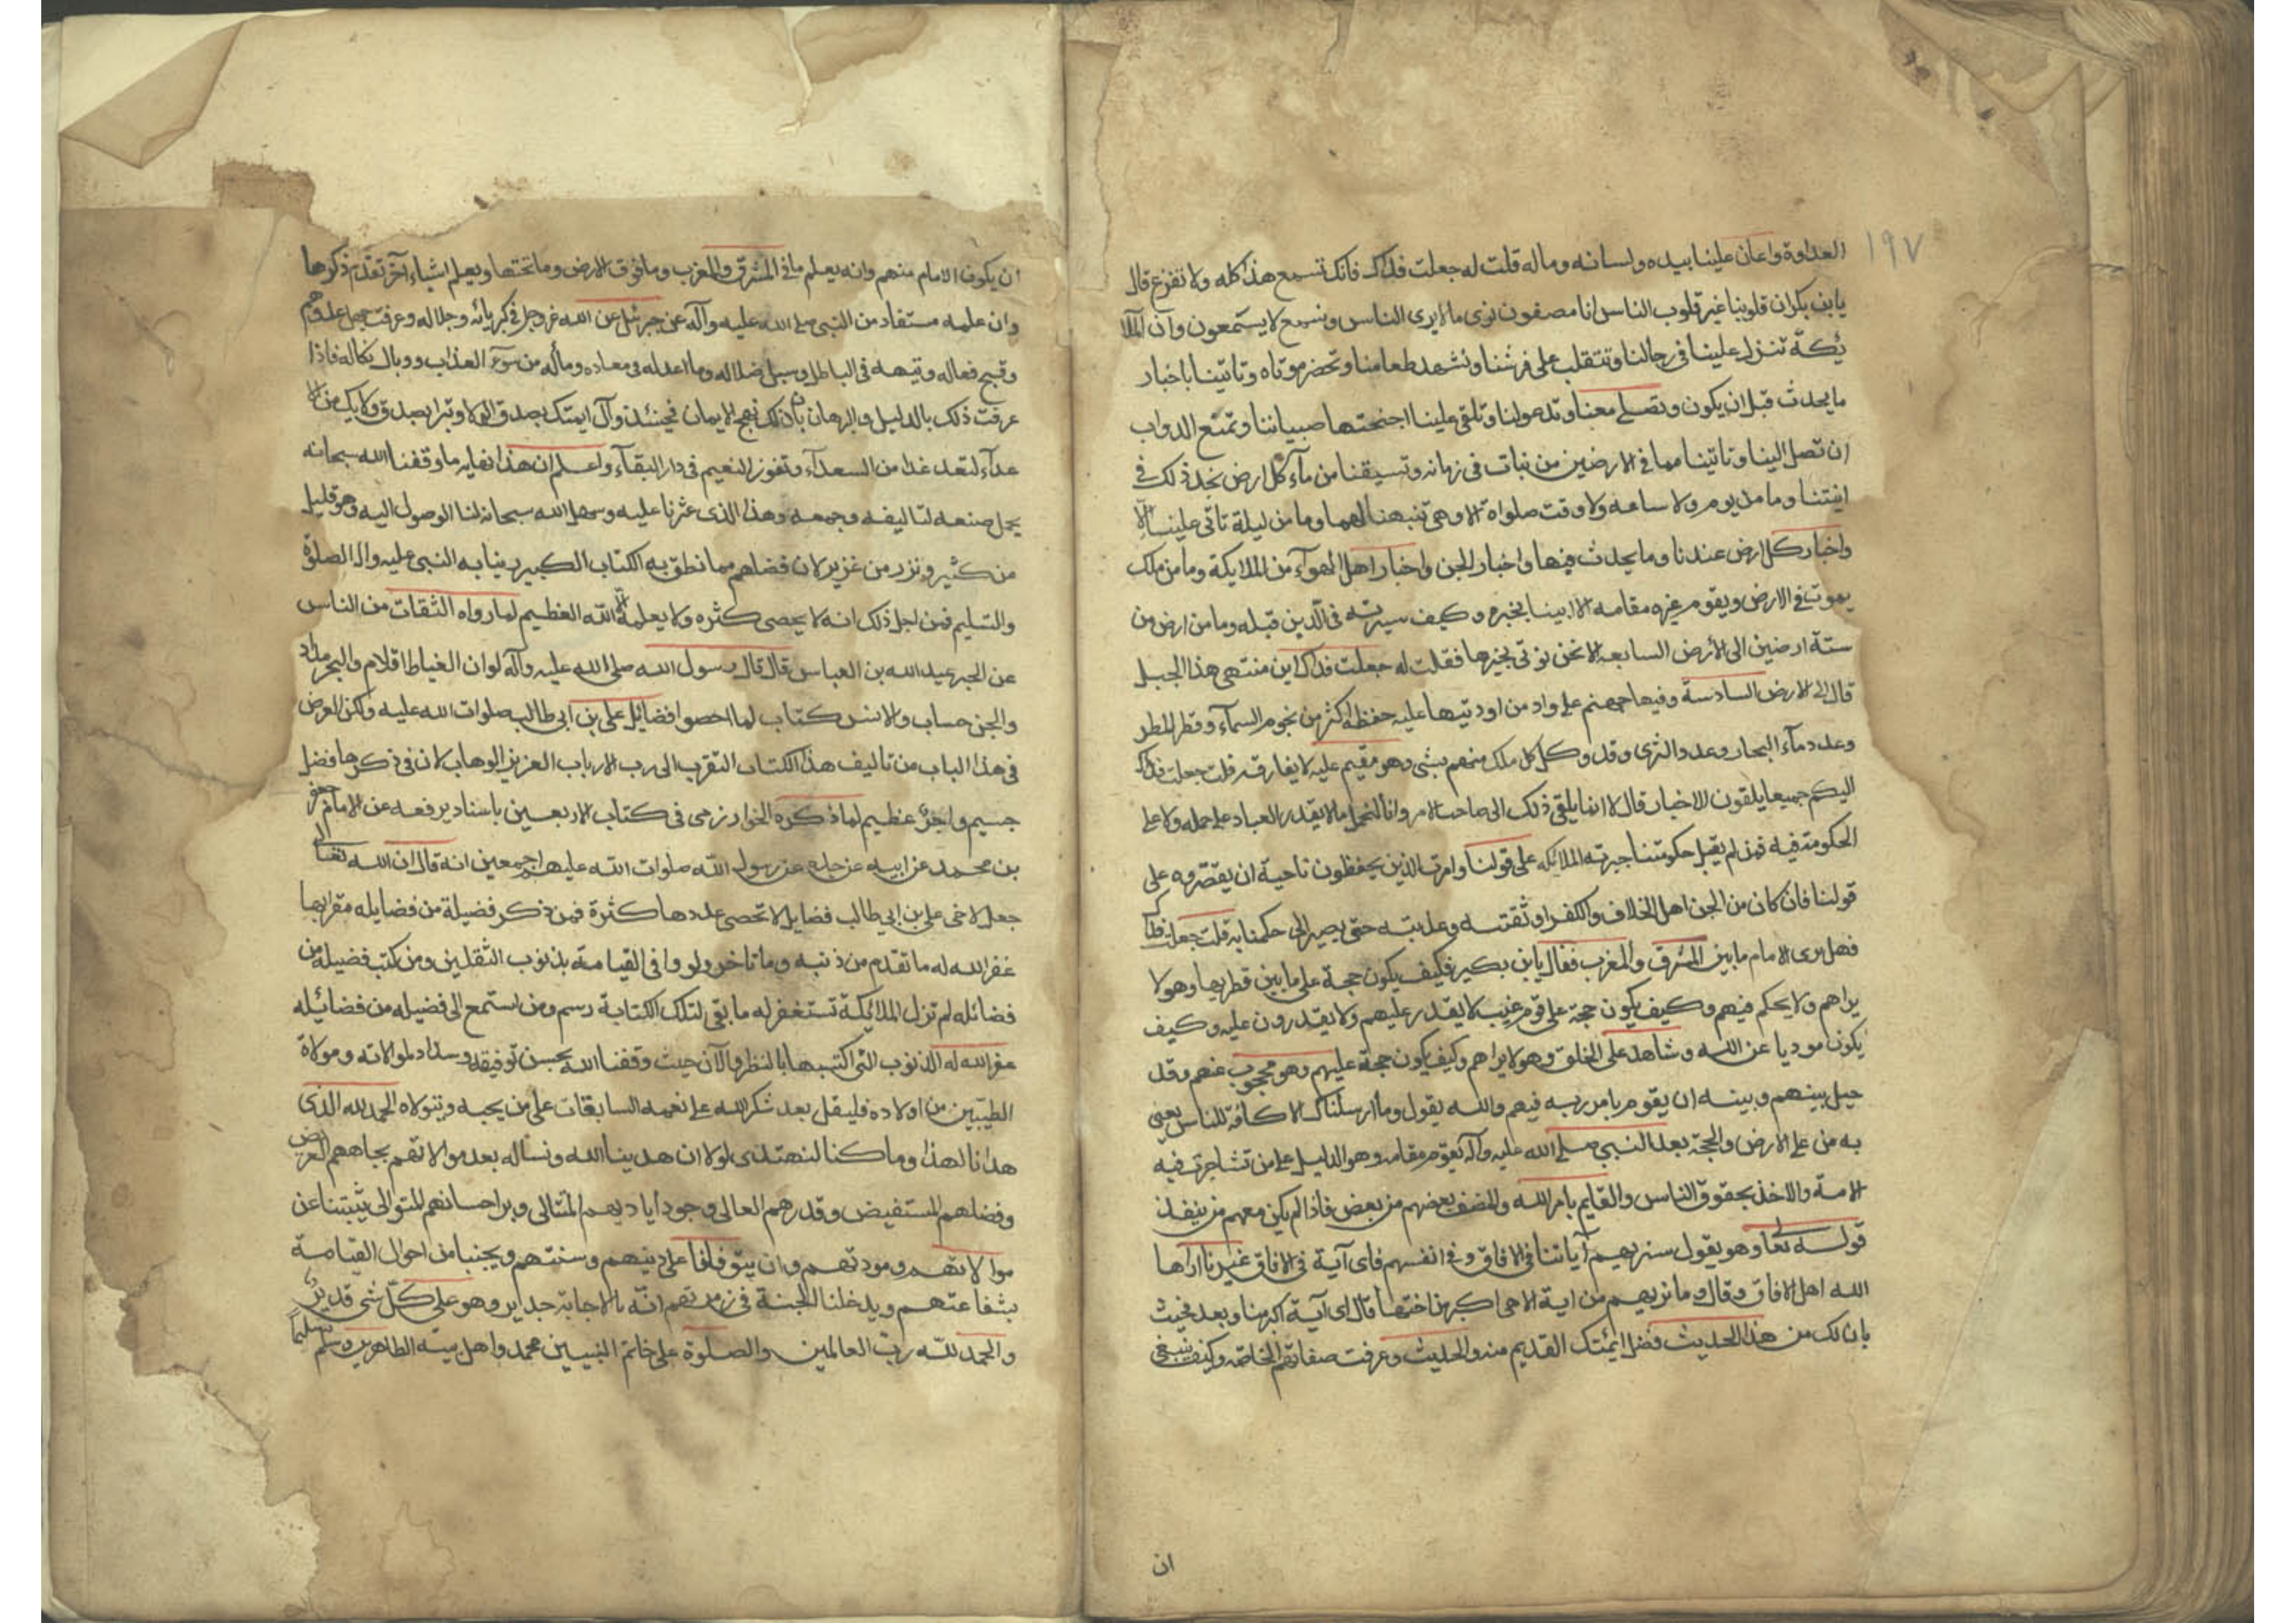 ١٩٧
العداوة واعان علينا بيده ولسانه وماله قلت له جعلت فداك فانك تسمع هذا كله ولا تفزع قال
يابن بكر ان قلوبنا غير قلوب الناس انا مصفون نرى ما لا يرى الناس ونسمع لا يستمعون وان الملا
ئكة تنزل علينا في رحالنا وتتقلب على فرشنا وتشهد طعامنا وتحضر موتاه وتاتينا باخبار
ما يحدث قبل ان يكون وتصلي معنا وتدعو لنا وتلقى علينا اجنحتها صبياننا وتمنع الدواب
ان تصل الينا وتاتينا مما في الارضين من نبات في زمانه وتسيقنا من مآء كل ارض نجد ذلك في
انيتنا وما من يوم ولا ساعه ولا وقت صلواة الا وهى تنبهنا لهما وما من ليلة تاتى علينا الا
واخبار كل ارض عندنا وما يحدث فيها واخبار الجن واخبار اهل الهوآء من الملايكة وما من ملك
يموت في الارض ويقوم غيره مقامه الا اتينا بخبره وكيف سيرته في الذين قبله وما من ارض من
ستة ارضين الى الأرض السابعه الا نحن نوتى بخبرها فقلت له جعلت فداك اين منتهى هذا الجبل
قال الى الارض السادسة وفيها جهنم على واد من اوديتها عليه حفظة اكثر من نجوم السمآء وقطر المطر
وعدد مآء البحار وعدد الثرى وقد وكل كل ملك منهم بشى وهو مقيم عليه لا يفارقه قلت جعلت فداك
اليكم جميعا يلقون الاخبار قال لا انما يلقى ذلك الى صاحب الامر وانا لنحمل ما لا يقدر العباد على حمله ولا على
الحكومة فيه فمن لم يقبل حكومتنا جبرته الملائكه على قولنا وامرت الذين يحفظون ناحية ان يقتروه على
قولنا فان كان من الجن اهل الخلاف والكفر اوثقته وعذبته حتى يصير الى حكمنا به قلت جعلت فداك
فهل يرى الامام ما بين المشرق والمغرب فقال يابن بكير فكيف يكون حجة على ما بين قطريها وهو لا
يراهم ولا يحكم فيهم وكيف يكون حجة على قوم غيب لا يقدر عليهم ولا يقدرون عليه وكيف
يكون موديا عن الله وشاهد على الخلق وهو لا يراهم وكيف يكون حجة عليهم وهو محجوب عنهم وقد
حيل بينهم وبينه ان يقوم بامر ربه فيهم والله يقول وما ارسلناك الا كافة للناس يعني
به من على الارض والحجة بعد النبي صلى الله عليه وآله يقوم مقامه وهو الدليل على من تشاجرت فيه
الامة والاخذ بحقوق الناس والقايم بامر الله والمنصف بعضهم من بعض فاذا لم يكن معهم من ينفذ
قوله تعا وهو يقول سنريهم آياتنا في الافاق وفي انفسهم فاى آية في الافاق غيرنا اراها
الله اهل الافاق وقال وما نريهم من اية الا هى اكبر من اختها فال اى آية اكبر منا وبعد فحيث
بان لك من هذا الحديث فضل ايمتك القديم منه والحديث وعرفت صفاتهم الخاصة وكيف ينبغي
ان
ان يكون الامام منهم وانه يعلم ما في المشرق والمغرب وما فوق الارض وما تحتها ويعلم اشياء آخر تقدم ذكرها
وان علمه مستفاد من النبى صلى الله عليه وآله عن جبرئيل عن الله عز وجل في كبريائه وجلاله وعرفت جهل عدوهم
وقبيح فعاله وتيهه في الباطل وسبيل ضلاله وما اعد له في معاده ومأله من سوء العذاب ووبال نكاله فاذا
عرفت ذلك بالدليل والبرهان بان لك نهج الايمان فحينئذ وآل ايمتك بصدق الولا وتبرا بصدق ولايك من الا
عدآء لتعد غدا من السعدآء وتفوز النعيم في دار البقآء واعلم ان هذا نهايه ما وقفنا الله سبحانه
بجمل صنعه لتاليفه وجمعه وهذا الذى عثرنا عليه وسهل الله سبحانه لنا الوصول اليه وهو قليل
من كثير ونزر من غزير لان فضلهم مما نطق به الكتاب الكبير نبأنا به النبى عليه واله الصلوة
والتسليم فمن اجل ذلك انه لا يحصى كثره ولا يعلمه الا الله العظيم لما رواه الثقات من الناس
عن الحبر عبد الله بن العباس قال قال رسول الله صلى الله عليه وآله لو ان الغياط اقلام والبحر مداد
والجن حساب والانس كتاب لما احصوا فضائل على بن ابى طالب صلوات الله عليه ولكن الغرض
في هذا الباب من تاليف هذا الكتاب التقرب الى رب الارباب العزيز الوهاب لان في ذكرها فضل
جسيم واجر عظيم لما ذكره الخوارزمى في كتاب الاربعين باسناد يرفعه عن الامام جعفر
بن محمد عن ابيه عن جده عن رسول الله صلوات الله عليهم اجمعين انه قال ان الله تعالى
جعل لاخى على بن ابى طالب فضايل لا تحصى عددها كثرة فمن ذكر فضيلة من فضايله مقرا بها
غفر الله له ما تقدم من ذنبه وما تاخر ولو وافى القيامة بذنوب الثقلين ومن كتب فضيله من
فضائله لم تزل الملائكة تستغفر له ما بقى لتلك الكتابة رسم ومن استمع الى فضيله من فضائيله
غفر الله له الذنوب التى اكتسبها بالنظر والآن حيث وقفنا الله بحسن توفيقه وسداد لموالاته وموالاة
الطيبين من اولاده فليقل بعد شكر الله على نعمه السابقات على من يحبه ويتولاه الحمد لله الذى
هدانا لهذا وما كنا لنهتدى لولا ان هدينا الله ونسأله بعد موالاتهم بجاههم العريض
وفضلهم المستفيض وقدرهم العالى وجود أياديهم المتالى وبر احسانهم المتوالى يثبتنا عن
موالاتهم ومودتهم وان يتوفانا على دينهم وسنتهم ويجنبنا من احوال القيامة
بشفاعتهم ويدخلنا الجنة في زمرتهم انه بالاجابة جدير وهو على كل شى قدير
والحمد لله رب العالمين والصلوة على خاتم النبيين محمد واهل بيته الطاهرين وسلم تسليما